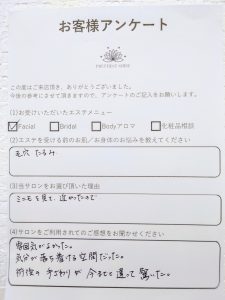 お客様アンケート
この度はご来店頂き、ありがとうございました。
今後の参考にさせて頂きますので、アンケートのご記入をお願いします。
(1)お受けいただいたエステメニュー
Facial Bridal Bodyアロマ 化粧品相談
(2)エステを受ける前のお肌／お身体のお悩みを教えてください
毛穴 たるみ
(3)当サロンをお選び頂いた理由
ミニモを見て、近かったので
(4)サロンをご利用されてのご感想をお聞かせください
雰囲気がよかった。
気分が落ち着ける空間だった。
術後の手ざわりが今までと違って驚いた。